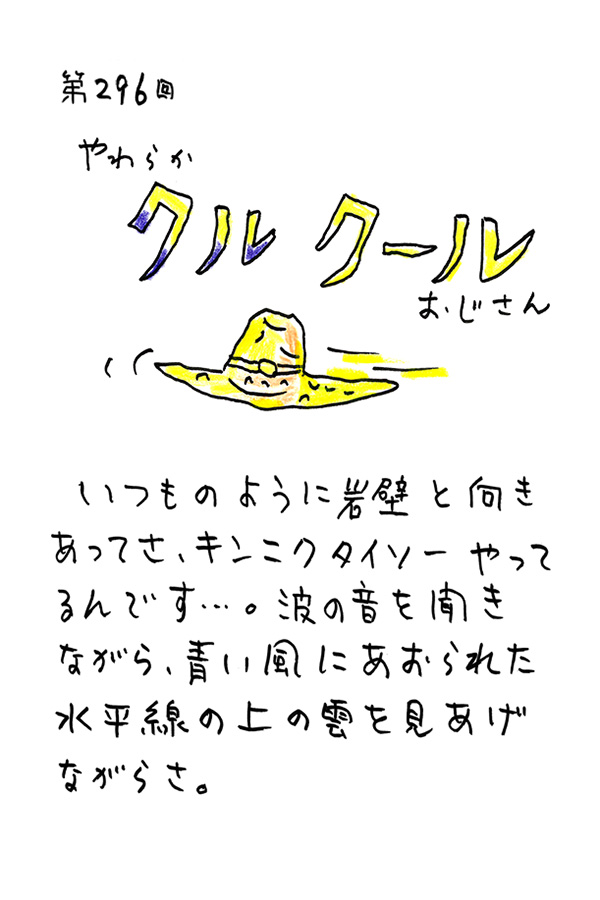 第296回
やわらか
クル クール
おじさん
いつものように岩壁と向き
あってさ、キンニクタイソーやって
るんです…。波の音を聞き
ながら、青い風にあおられた
水平線の上の雲を見あげ
ながらさ。